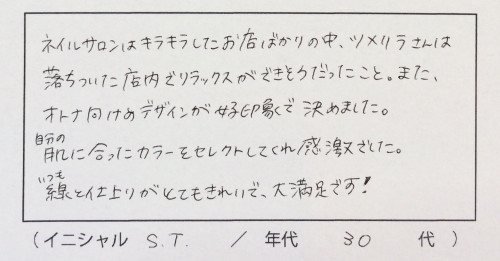 ネイルサロンはキラキラしたお店ばかりの中、ツメリラさんは
落ちついた店内でリラックスができそうだったこと。また、
オトナ向けのデザインが好印象で決めました。
自分の
肌に合ったカラーをセレクトしてくれ感激でした。
いつも
線と仕上りがとてもきれいで、大満足です!
(イニシャル S.T. / 年代 30 代 )